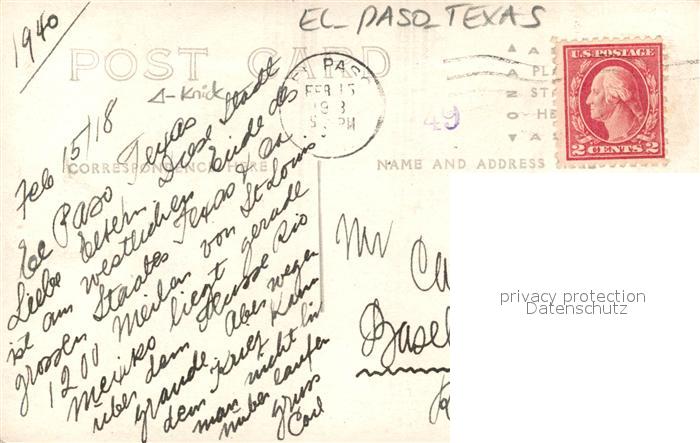 1940
EL PASO TEXAS
POST CARD
△-Knick
EL PASO
FEB 15
PM
49
U.S. POSTAGE
2 CENTS 2
CORRESPONDENCE HERE
NAME AND ADDRESS HE
Feb 15/18
El Paso Texas
Liebe Eltern Diese Stadt
ist am westlichen Ende des
grossen Staates Texas & ca.
1200 Meilen von St. Louis.
Mexiko liegt gerade
über dem Flusse Rio
grande. Aber wegen
dem Krieg kann
man nicht hi
nüber laufen
Gruss
Carl
Mr
Basel
privacy protection
Datenschutz